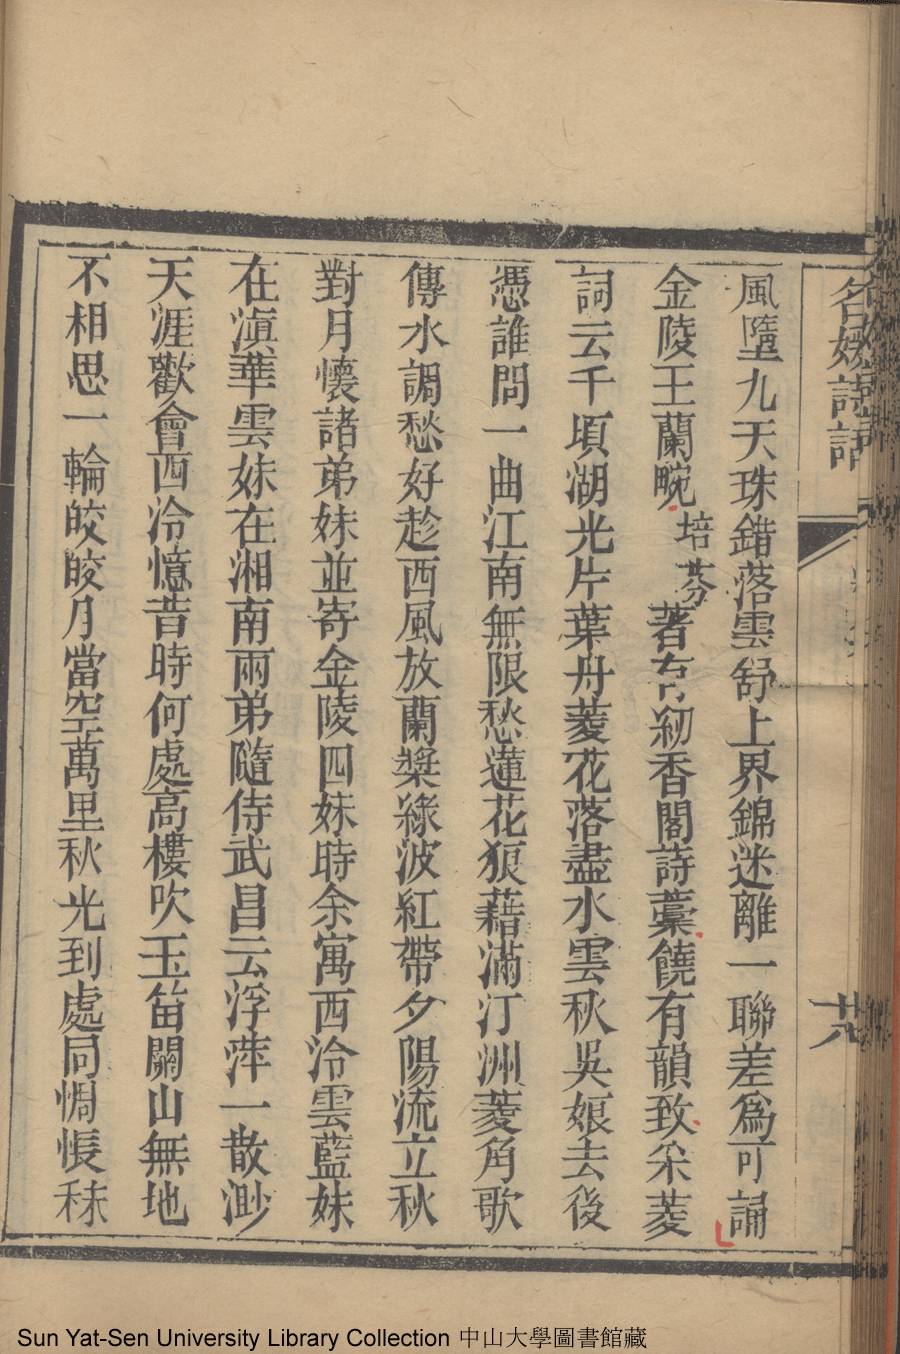 名媛詩話
風墮九天珠錯落雲舒上界錦迷離一聯差為可誦
金陵王蘭畹培芬著有紉香閣詩藁饒有韻致采菱
詞云千頃湖光片葉舟菱花落盡水雲秋吳娘去後
憑誰問一曲江南無限愁蓮花狼藉滿汀洲菱角歌
傳水調愁好趁西風放蘭槳綠波紅帶夕陽流立秋
對月懷諸弟妹並寄金陵四妹時余寓西泠雲藍妹
在滇華雲妹在湘南兩弟隨侍武昌云浮萍一散渺
天涯歡會西泠憶昔時何處高樓吹玉笛關山無地
不相思一輪皎皎月當空萬里秋光到處同惆悵秣
Sun Yat-Sen University Library Collection 中山大學圖書館藏